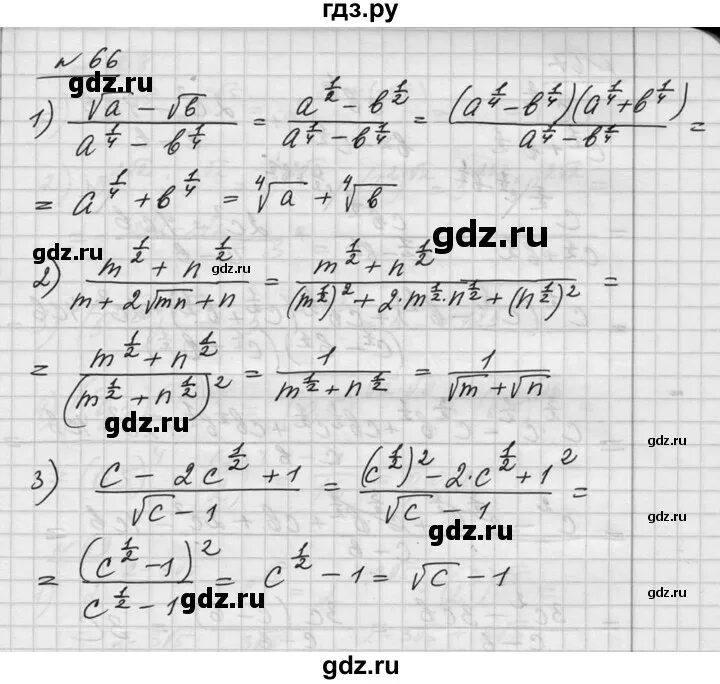 гдз.ру
№ 66
1) (√a − √b)/(a^(1/4) − b^(1/4)) = (a^(1/2) − b^(1/2))/(a^(1/4) − b^(1/4)) = ((a^(1/4) − b^(1/4))(a^(1/4) + b^(1/4)))/(a^(1/4) − b^(1/4)) =
= a^(1/4) + b^(1/4) = ⁴√a + ⁴√b
gdz.ru
gdz.ru
gdz.ru
2) (m^(1/2) + n^(1/2))/(m + 2√mn + n) = (m^(1/2) + n^(1/2))/((m^(1/2))² + 2·m^(1/2)·n^(1/2) + (n^(1/2))²) =
= (m^(1/2) + n^(1/2))/((m^(1/2) + n^(1/2))²) = 1/(m^(1/2) + n^(1/2)) = 1/(√m + √n)
gdz.ru
gdz.ru
3) (c − 2c^(1/2) + 1)/(√c − 1) = ((c^(1/2))² − 2·c^(1/2) + 1²)/(√c − 1) =
gdz.ru
= ((c^(1/2) − 1)²)/(c^(1/2) − 1) = c^(1/2) − 1 = √c − 1
gdz.ru
gdz.ru
gdz.ru